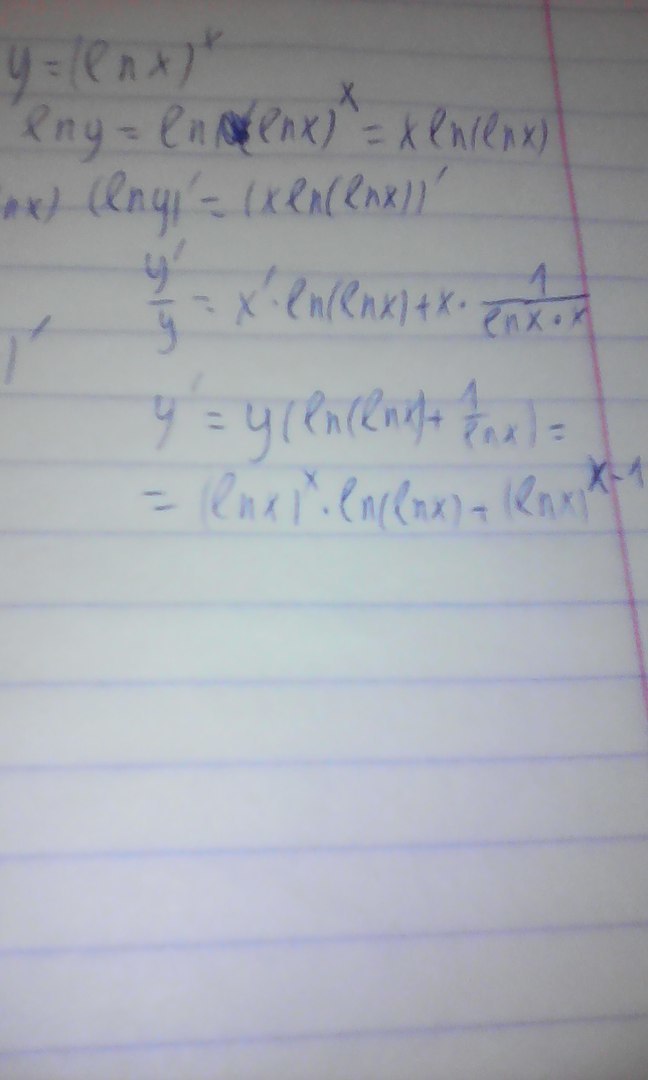 y = (ln x)^x
ln y = ln (ln x)^x = x ln(ln x)
nx) (ln y)' = (x ln(ln x))'
y'/y = x' · ln(ln x) + x · 1/(ln x · x)
)'
y' = y(ln(ln x) + 1/ln x) =
= (ln x)^x · ln(ln x) + (ln x)^(x-1)